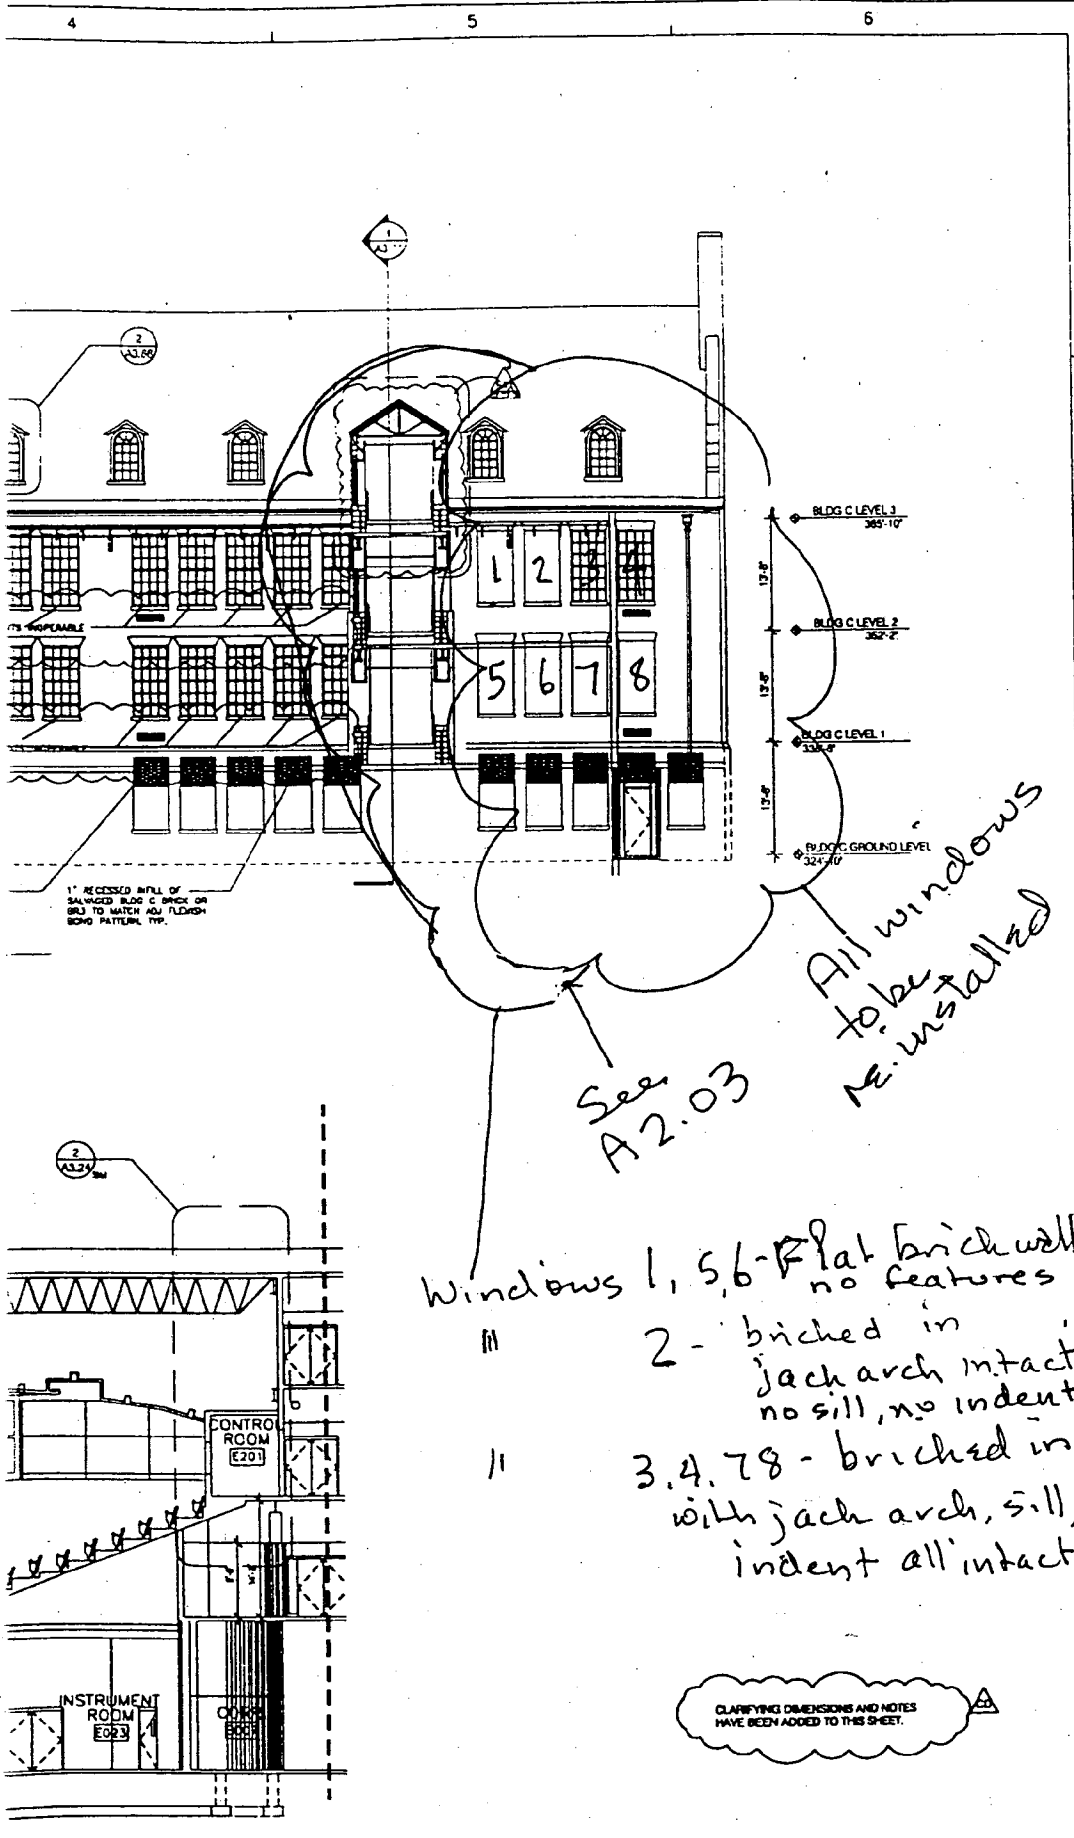 4
5
6
2
A3.66
1
1 2 3 4
5 6 7 8
BLDG C LEVEL 3
365'-10"
13'-8"
BLDG C LEVEL 2
352'-2"
13'-8"
BLDG C LEVEL 1
338'-6"
13'-8"
BLDG C GROUND LEVEL
324'-10"
INOPERABLE
1" RECESSED INFILL OF
SALVAGED BLDG C BRICK OR
BR3 TO MATCH ADJ FLEMISH
BOND PATTERN, TYP.
All windows
to be
re-installed
See
A2.03
2
A3.24
SIM
Windows 1, 5,6 - Flat brick wall
no features
" 2 - bricked in
jack arch intact
no sill, no indent
" 3.4.78 - bricked in
with jack arch, sill,
indent all intact
CONTROL
ROOM
E201
INSTRUMENT
ROOM
E023
CLARIFYING DIMENSIONS AND NOTES
HAVE BEEN ADDED TO THIS SHEET.